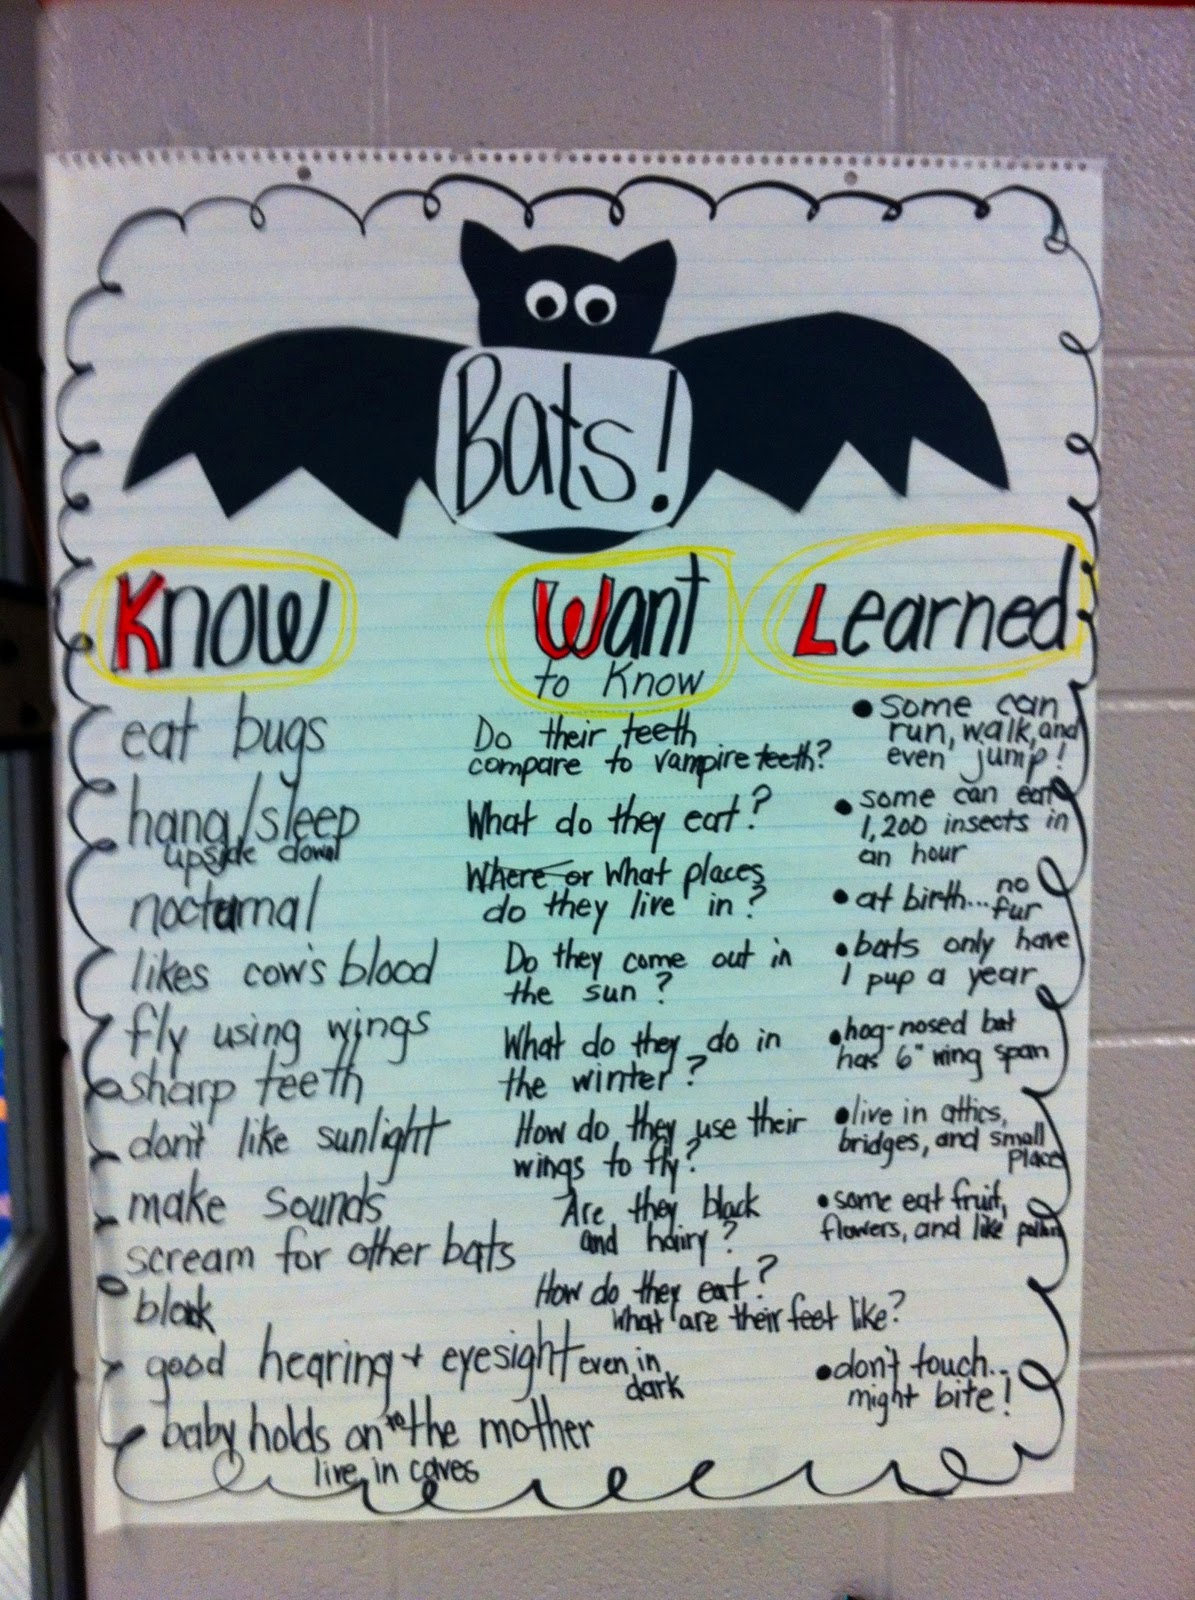 Bats!
Know
eat bugs
hang/sleep
upside down
nocturnal
likes cow's blood
fly using wings
sharp teeth
don't like sunlight
make sounds
scream for other bats
black
good hearing + eyesight even in
dark
baby holds on to the mother
live in caves
Want
to Know
Do their teeth
compare to vampire teeth?
What do they eat?
Where or What places
do they live in?
Do they come out in
the sun?
What do they do in
the winter?
How do they use their
wings to fly?
Are they black
and hairy?
How do they eat?
What are their feet like?
Learned
• some can
run, walk, and
even jump!
• some can eat
1,200 insects in
an hour
• at birth... no
fur
• bats only have
1 pup a year
• hog-nosed bat
has 6" wing span
• live in attics,
bridges, and small
place
• some eat fruit,
flowers, and like pollen
• don't touch...
might bite!